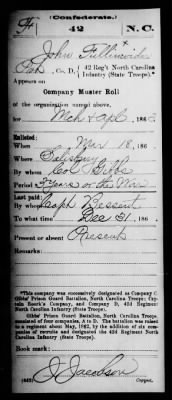 (Confederate.)
42 N. C.
John Fullinwider
Pvt, Co. D, 42 Reg't North Carolina Infantry (State Troops).*
Appears on
Company Muster Roll
of the organization named above,
for Mch & Apl, 186
Enlisted:
When Mar 18, 186
Where Salisbury
By whom Col Gibbs
Period 3 Years or the War
Last paid:
By whom Capt Bessent
To what time Dec 31, 186
Present or absent Present
Remarks:
*This company was successively designated as Company C, Gibbs' Prison Guard Battalion, North Carolina Troops; Captain Roark's Company, and Company D, 42d Regiment North Carolina Infantry (State Troops).
Gibbs' Prison Guard Battalion, North Carolina Troops, consisted of four companies, A to D. The battalion was raised to a regiment about May, 1862, by the addition of six companies of recruits and designated the 42d Regiment North Carolina Infantry (State Troops).
Book mark:
(642) J. Jacobson
Copyist.